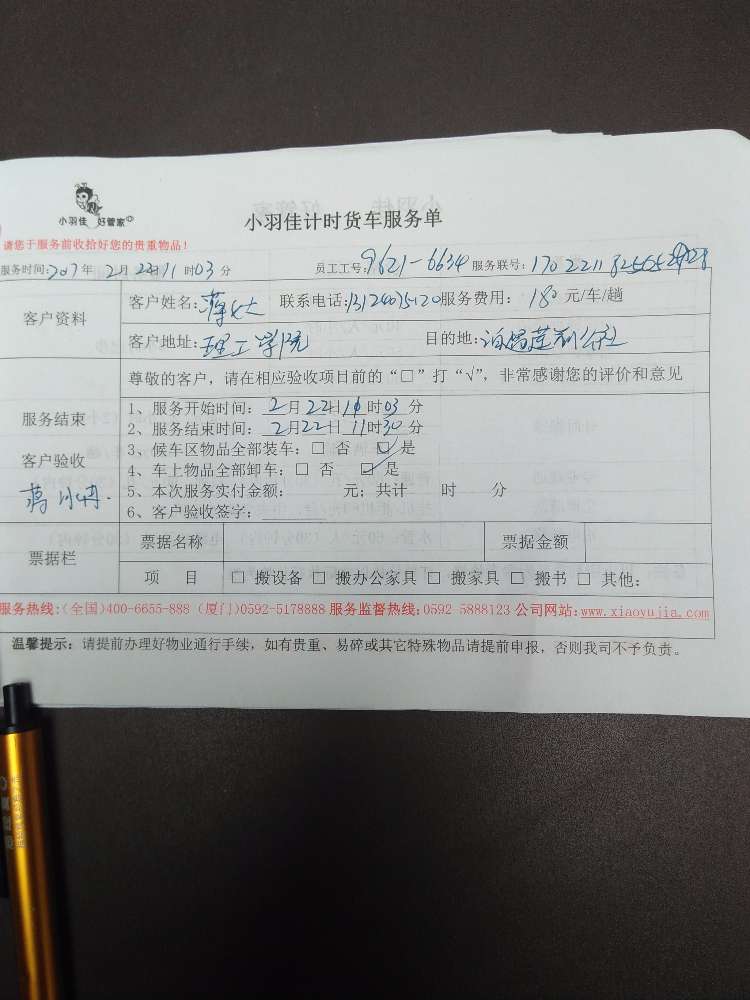 小羽佳 好管家
小羽佳计时货车服务单
请您于服务前收拾好您的贵重物品!
服务时间:2017年 2月 22日 11时03分 员工工号:9621-6634 服务联号:
客户资料
客户姓名: 联系电话:13124075120 服务费用: 180 元/车/趟
客户地址:理工学院 目的地:
服务结束
客户验收
尊敬的客户,请在相应验收项目前的“□”打“√”,非常感谢您的评价和意见
1、服务开始时间: 2月22日 时03分
2、服务结束时间: 2月22日 11时30分
3、候车区物品全部装车:□ 否 ☑ 是
4、车上物品全部卸车:□ 否 ☑ 是
5、本次服务实付金额: 元;共计 时 分
6、客户验收签字:
票据栏
票据名称 票据金额
项 目 □ 搬设备 □ 搬办公家具 □ 搬家具 □ 搬书 □ 其他:
服务热线:(全国)400-6655-888 (厦门)0592-5178888 服务监督热线:0592-5888123 公司网站:www.xiaoyujia.com
温馨提示:请提前办理好物业通行手续,如有贵重、易碎或其它特殊物品请提前申报,否则我司不予负责。